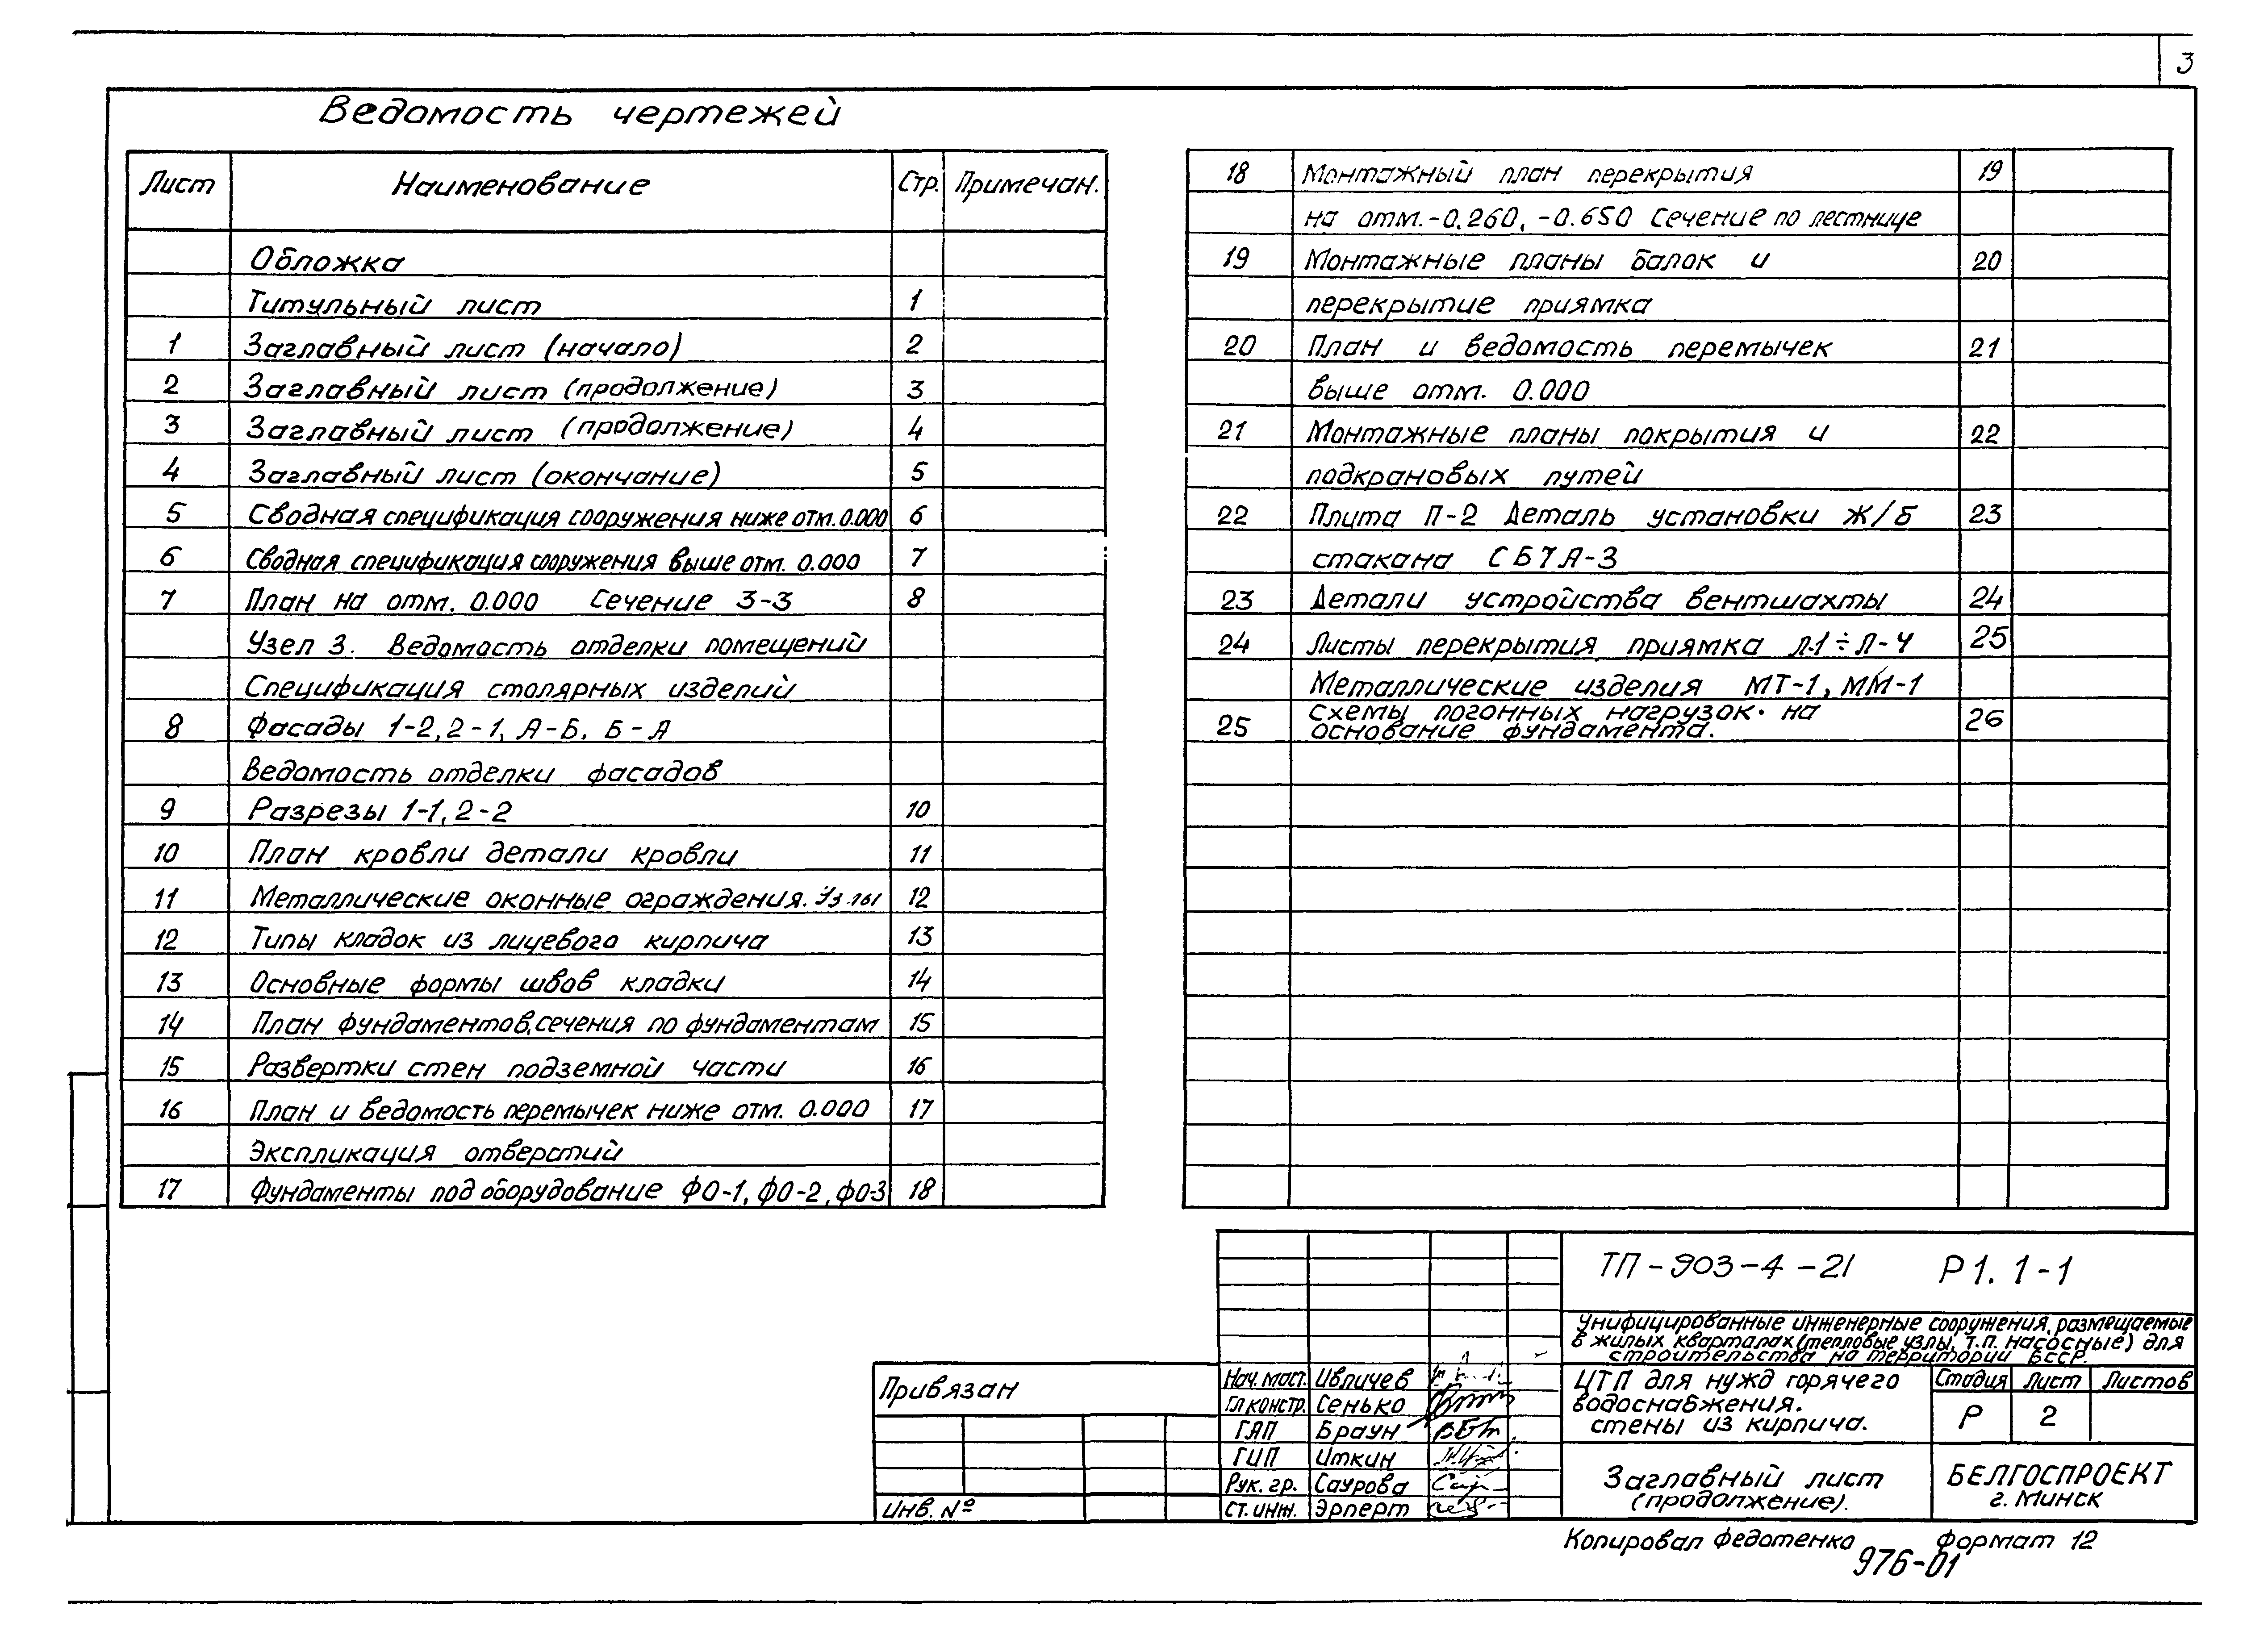 3
Ведомость чертежей
Лист Наименование Стр. Примечан.
Обложка
Титульный лист 1
1 Заглавный лист (начало) 2
2 Заглавный лист (продолжение) 3
3 Заглавный лист (продолжение) 4
4 Заглавный лист (окончание) 5
5 Сводная спецификация сооружения ниже отм. 0.000 6
6 Сводная спецификация сооружения выше отм. 0.000 7
7 План на отм. 0.000 Сечение 3-3 8
Узел 3. Ведомость отделки помещений
Спецификация столярных изделий
8 Фасады 1-2, 2-1, А-Б, Б-А
Ведомость отделки фасадов
9 Разрезы 1-1, 2-2 10
10 План кровли детали кровли 11
11 Металлические оконные ограждения. 12
12 Типы кладок из лицевого кирпича 13
13 Основные формы швов кладки 14
14 План фундаментов, сечения по фундаментам 15
15 Развертки стен подземной части 16
16 План и ведомость перемычек ниже отм. 0.000 17
Экспликация отверстий
17 Фундаменты под оборудование ФО-1, ФО-2, ФО-3 18
18 Монтажный план перекрытия 19
на отм. -0.260, -0.650 Сечение по лестнице
19 Монтажные планы балок и 20
перекрытие приямка
20 План и ведомость перемычек 21
выше отм. 0.000
21 Монтажные планы покрытия и 22
подкрановых путей
22 Плита П-2 Деталь установки ж/б 23
стакана СБ7А-3
23 Детали устройства вентшахты 24
24 Листы перекрытия приямка Л-1÷Л-4 25
Металлические изделия МТ-1, ММ-1
25 Схемы погонных нагрузок на 26
основание фундамента.
ТП-903-4-21 Р1.1-1
Унифицированные инженерные сооружения, размещаемые
в жилых кварталах (тепловые узлы, т.п. насосные) для
строительства на территории БССР.
Привязан
Инв. №
Нач. маст. Ивличев
Гл констр. Сенько
ГАП Браун
ГИП Иткин
Рук. гр. Саурова
Ст. инж. Эрперт
ЦТП для нужд горячего
водоснабжения.
стены из кирпича.
Стадия Лист Листов
Р 2
Заглавный лист
(продолжение).
БЕЛГОСПРОЕКТ
г. Минск
Копировал Федотенко Формат 12
976-01